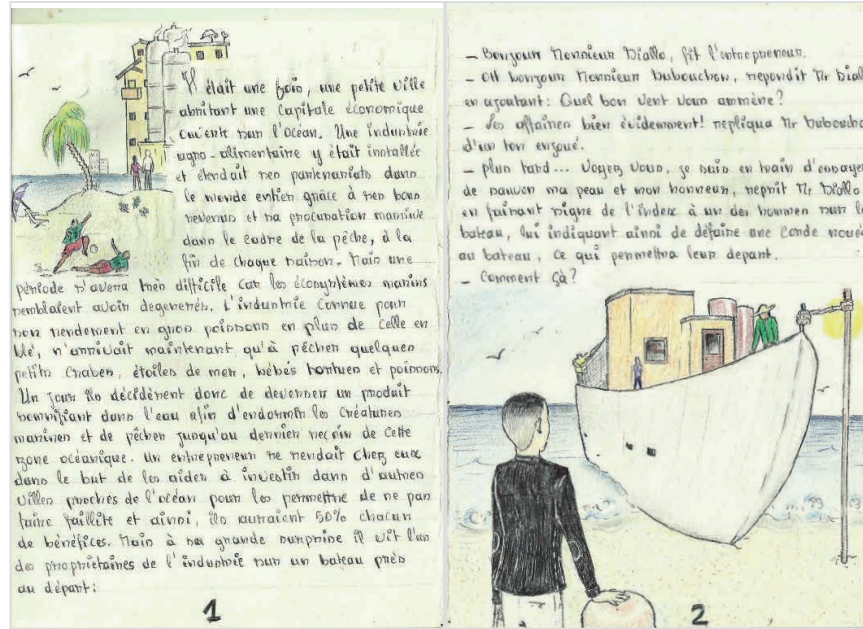 Il était une fois, une petite ville
abritant une capitale économique
ouverte sur l'océan. Une industrie
agro-alimentaire y était installée
et étendait ses partenariats dans
le monde entier grâce à ses bons
revenus et sa procuration massive
dans le cadre de la pêche, à la
fin de chaque saison. Mais une
période s'avera très difficile car les écosystèmes marins
semblaient avoir degenerés. L'industrie connue pour
son rendement en gros poissons en plus de celle en
blé, n'arrivait maintenant qu'à pêcher quelques
petits crabes, étoiles de mer, bébés tortues et poissons.
Un jour ils décidèrent donc de deverser un produit
somnifiant dans l'eau afin d'endormir les créatures
marines et de pêcher jusqu'au dernier recoin de cette
zone océanique. Un entrepreneur se rendait chez eux
dans le but de les aider à investir dans d'autres
villes proches de l'océan pour les permettre de ne pas
faire faillite et ainsi, ils auraient 50% chacun
de bénéfices. Mais à sa grande surprise il vit l'un
des propriétaires de l'industrie sur un bateau près
au départ:
1
- Bonjour Monsieur Diallo, fit l'entrepreneur.
- Oh bonjour Monsieur Dubouchon, repondit Mr Diallo
en ajoutant: Quel bon vent vous ammène?
- Les affaires bien évidemment! repliqua Mr Dubouchon
d'un ton enjoué.
- plus tard... Voyez vous, je suis en train d'essayer
de sauver ma peau et mon honneur, reprit Mr Diallo
en faisant signe de l'index à un des hommes sur le
bateau, lui indiquant ainsi de défaire une corde nouée
au bateau, ce qui permettra leur depart.
- Comment çà?
2